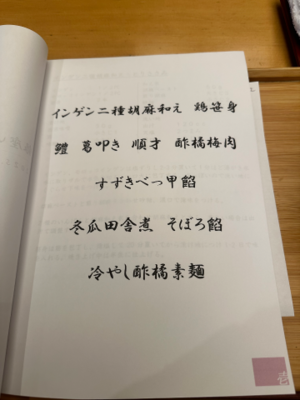 インゲン二種胡麻和え　鶏笹身
鱧　葛叩き　順才　酢橘梅肉
すずきべっ甲餡
冬瓜田舎煮　そぼろ餡
冷やし酢橘素麺